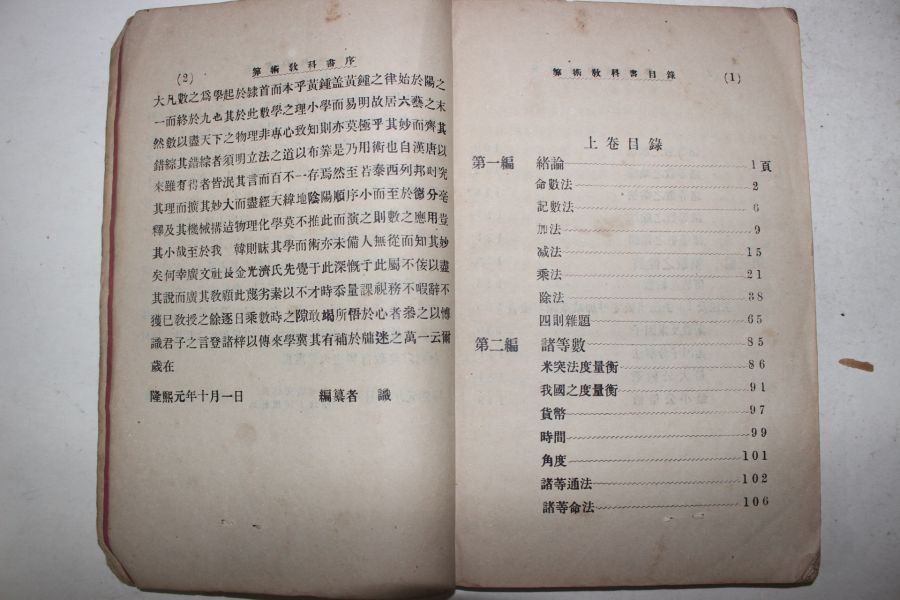 (2)
算術教科書序
大凡數之爲學起於隷首而本乎黃鍾盖黃鍾之律始於陽之
一而終於九也其於此數學之理小學而易明故居六藝之末
然數以盡天下之物理非專心致知則亦莫極乎其妙而齊其
錯綜其錯綜者須明立法之道以布筭是乃用術也自漢唐以
來雖有得者皆泯其言而百不一存焉然至若泰西列邦則究
其理而擴其妙大而盡經天緯地陰陽順序小而至於德分毫
釋及其機械搆造物理化學莫不推此而演之則數之應用豈
其小哉至於我 韓則昧其學而術亦未備人無從而知其妙
矣何幸廣文社長金光濟氏先覺于此深慨于此屬不佞以盡
其說而廣其敎顧此蔑劣素以不才時忝量課視務不暇辭不
獲已敎授之餘逐日乘數時之隙敢竭所悟於心者參之以博
識君子之言登諸梓以傳來學冀其有補於牖迷之萬一云爾
歲在
隆熙元年十月一日 編纂者 識
算術敎科書目錄
(1)
上卷目錄
第一編 緒論 1頁
命數法 2
記數法 6
加法 9
減法 15
乘法 21
除法 38
四則雜題 65
第二編 諸等數 85
米突法度量衡 86
我國之度量衡 91
貨幣 97
時間 99
角度 101
諸等通法 102
諸等命法 106